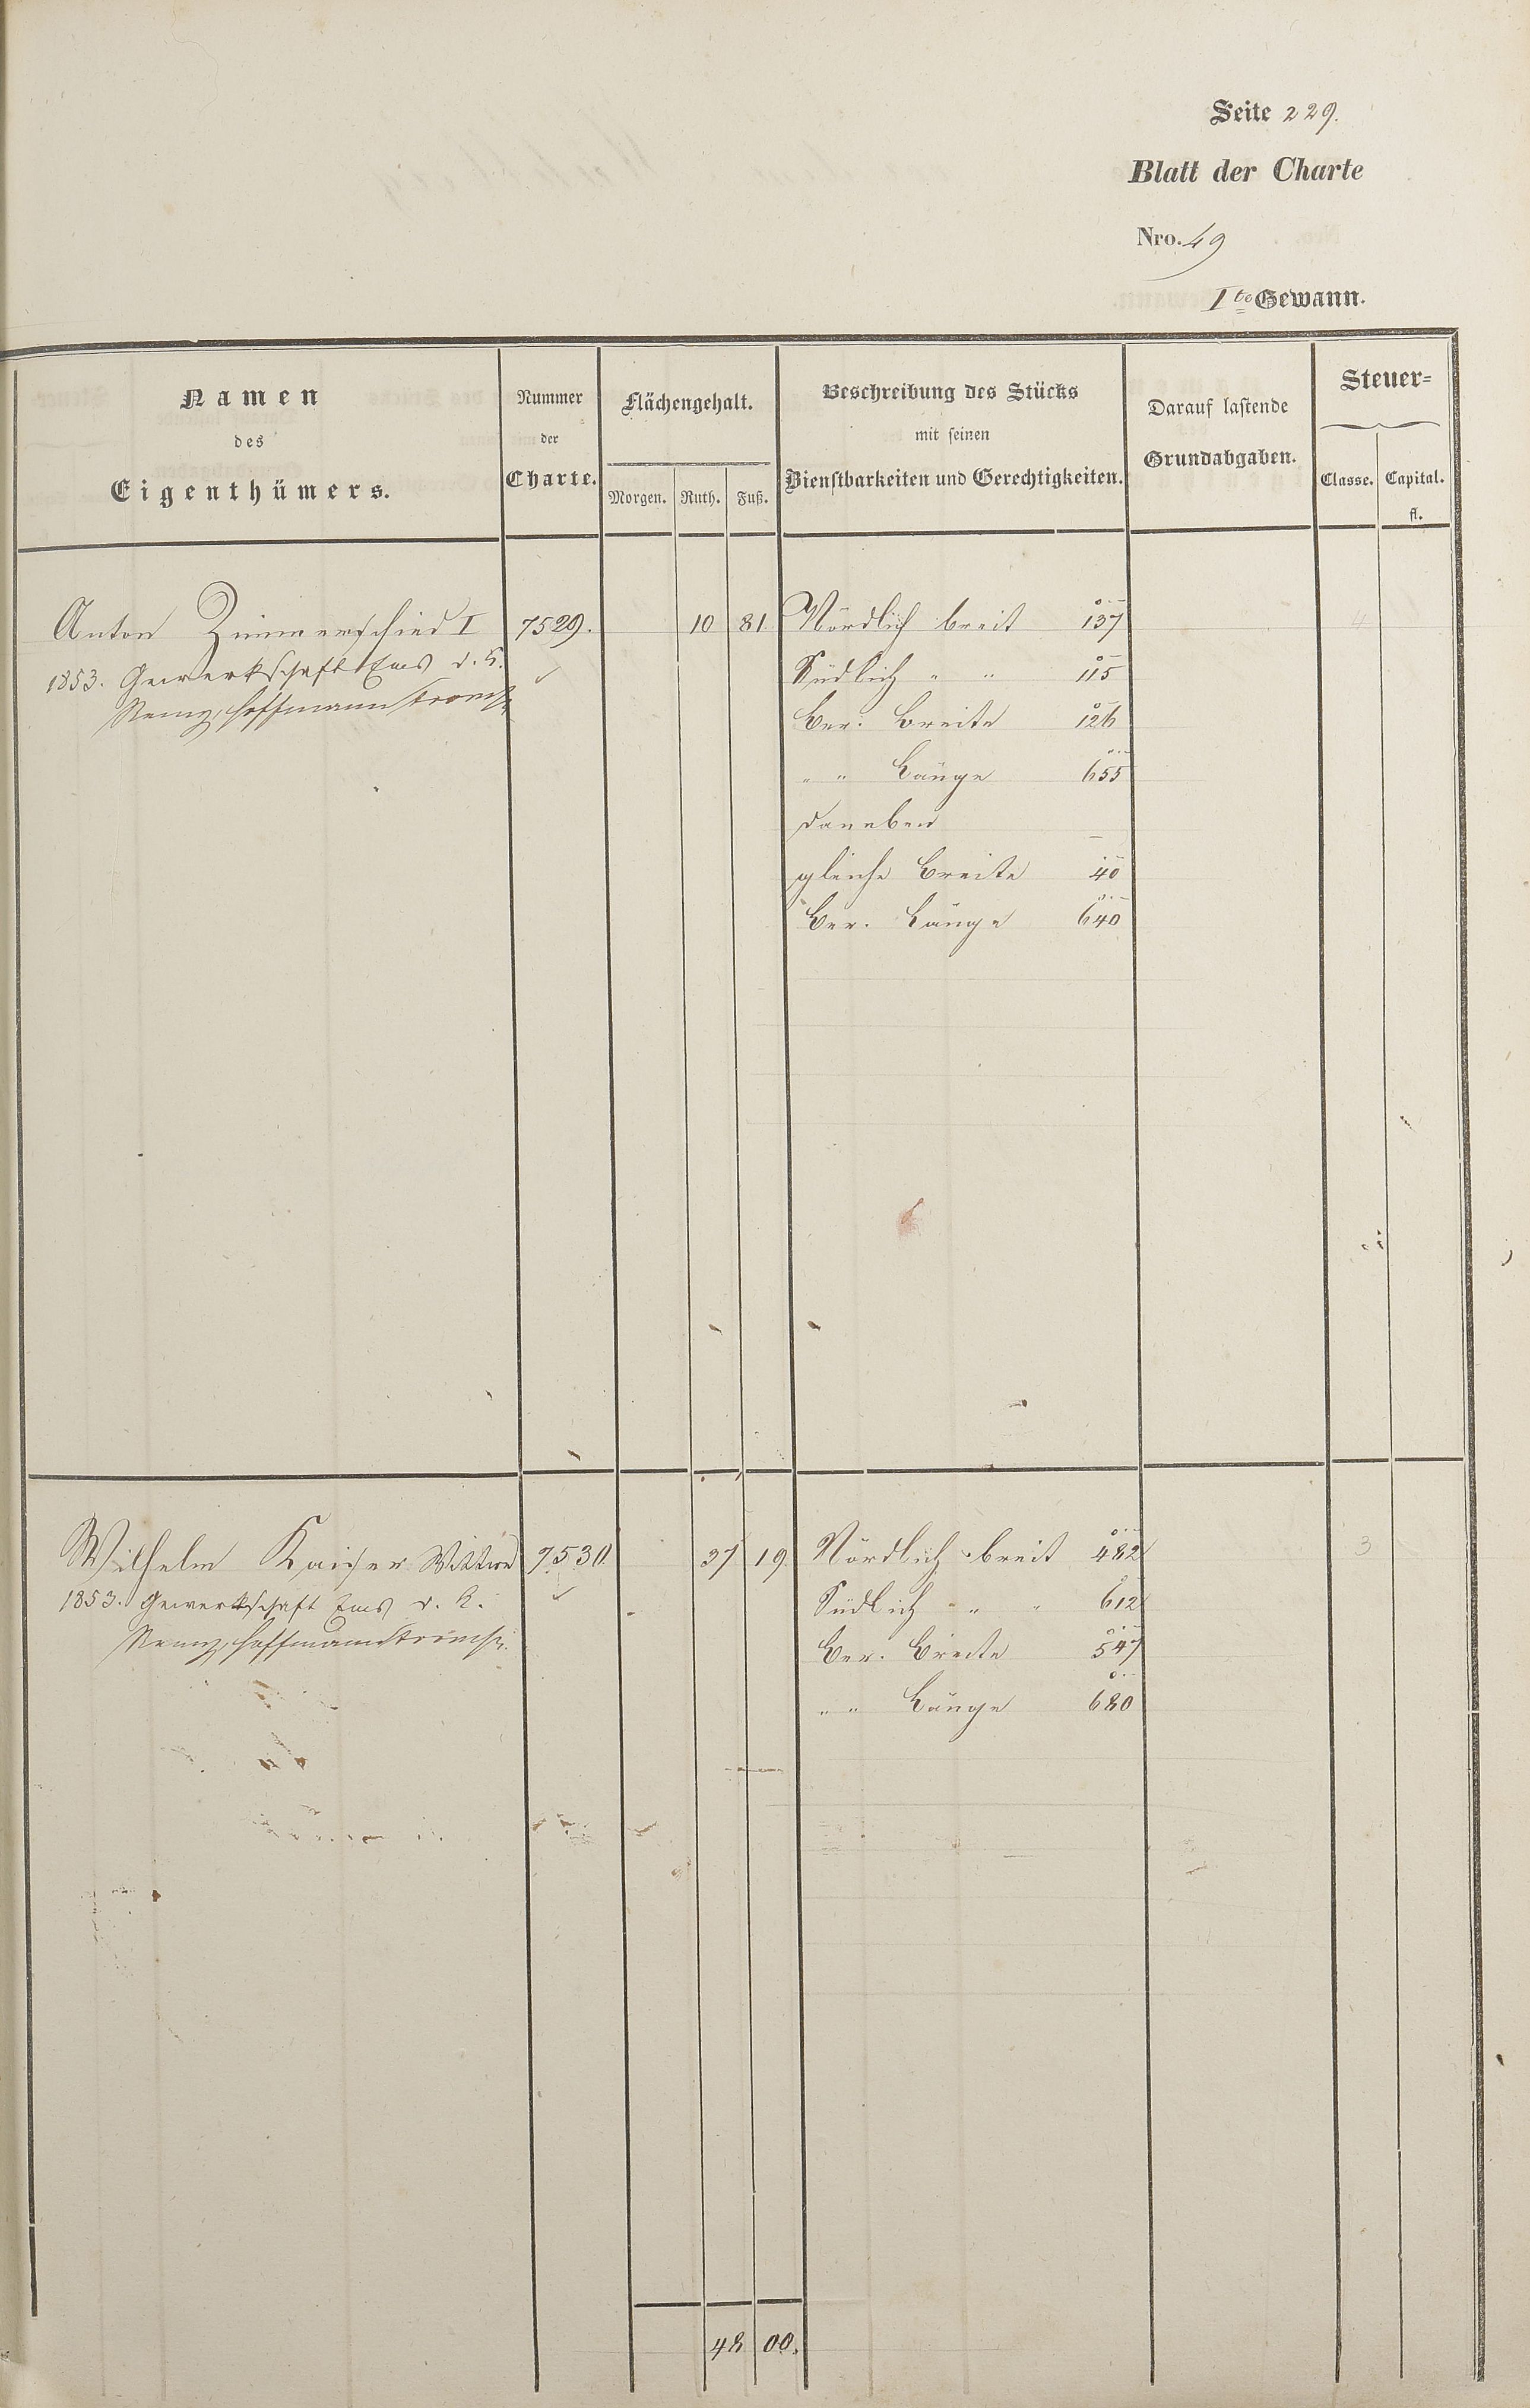 Seite 229.
Blatt der Charte
Nro. 49
Ite Gewann.
Namen
des
Eigenthümers.
Nummer
der
Charte.
Flächengehalt.
Morgen. Ruth. Fuß.
Beschreibung des Stücks
mit seinen
Dienstbarkeiten und Gerechtigkeiten.
Darauf lastende
Grundabgaben.
Steuer=
Classe. Capital.
fl.
Anton Zimmerschied I 7529. 10 81 Nördlich breit 137 4
1853. Gewerkschaft Ems d. K. Südlich " " 115
Hoffmann
Ber. Breite 126
" " Länge 655
daneben
gleiche Breite 40
Ber. Länge 640
Wilhelm Kaiser Wittwe 7530. 37 19. Nördlich breit 482 3
1853. Gewerkschaft Ems d. K. Südlich " " 612
Hoffmann Ber. Breite 547
" " Länge 680
48 00.